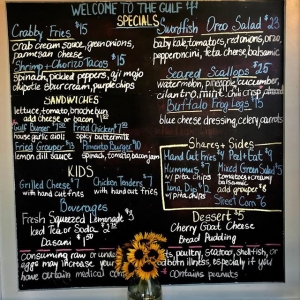 WELCOME TO THE GULF
SPECIALS
Crabby Fries $15
crab cream sauce, green onions,
parmesan cheese
Shrimp + Chorizo Tacos $15
spinach, pickled peppers, aji mojo
chipotle sour cream, purple chips
Swordfish Orzo Salad $23
baby kale, tomatoes, red onions, orzo,
pepperoncini, feta cheese, balsamic
Seared Scallops
watermelon, pineapple, cucumber,
cilantro, mint, chili crisp, almond
Buffalo Frog Legs $15
blue cheese dressing, celery, carrots
SANDWICHES
lettuce, tomato, brioche bun
add cheese or bacon
Gulf Burger Fried Chicken
house garlic aioli spicy buttermilk
Fried Grouper Pimento Burger
lemon dill sauce spinach, tomato, bacon jam
KIDS
Grilled Cheese Chicken Tenders
with hand cut fries with hand cut fries
Beverages
Fresh Squeezed Lemonade
Iced Tea or Soda
Dasani
Shares + Sides
Hand Cut Fries Peel + Eat
Hummus $7 Mixed Green Salad
w/ pita chips tomatoes, creamy
balsamic
Tuna Dip add grouper
w/ pita chips Street Corn
Dessert $5
Cherry Goat Cheese
Bread Pudding
consuming raw or poultry, seafood, shellfish, or
eggs may increase your illness, especially if you
have certain medical contains peanuts